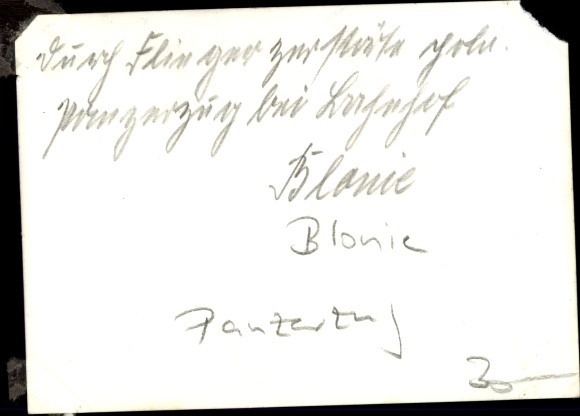 durch Flieger zerstörte poln.
Panzerzug bei Bahnhof
Blonie
Blonie
Panzerzug